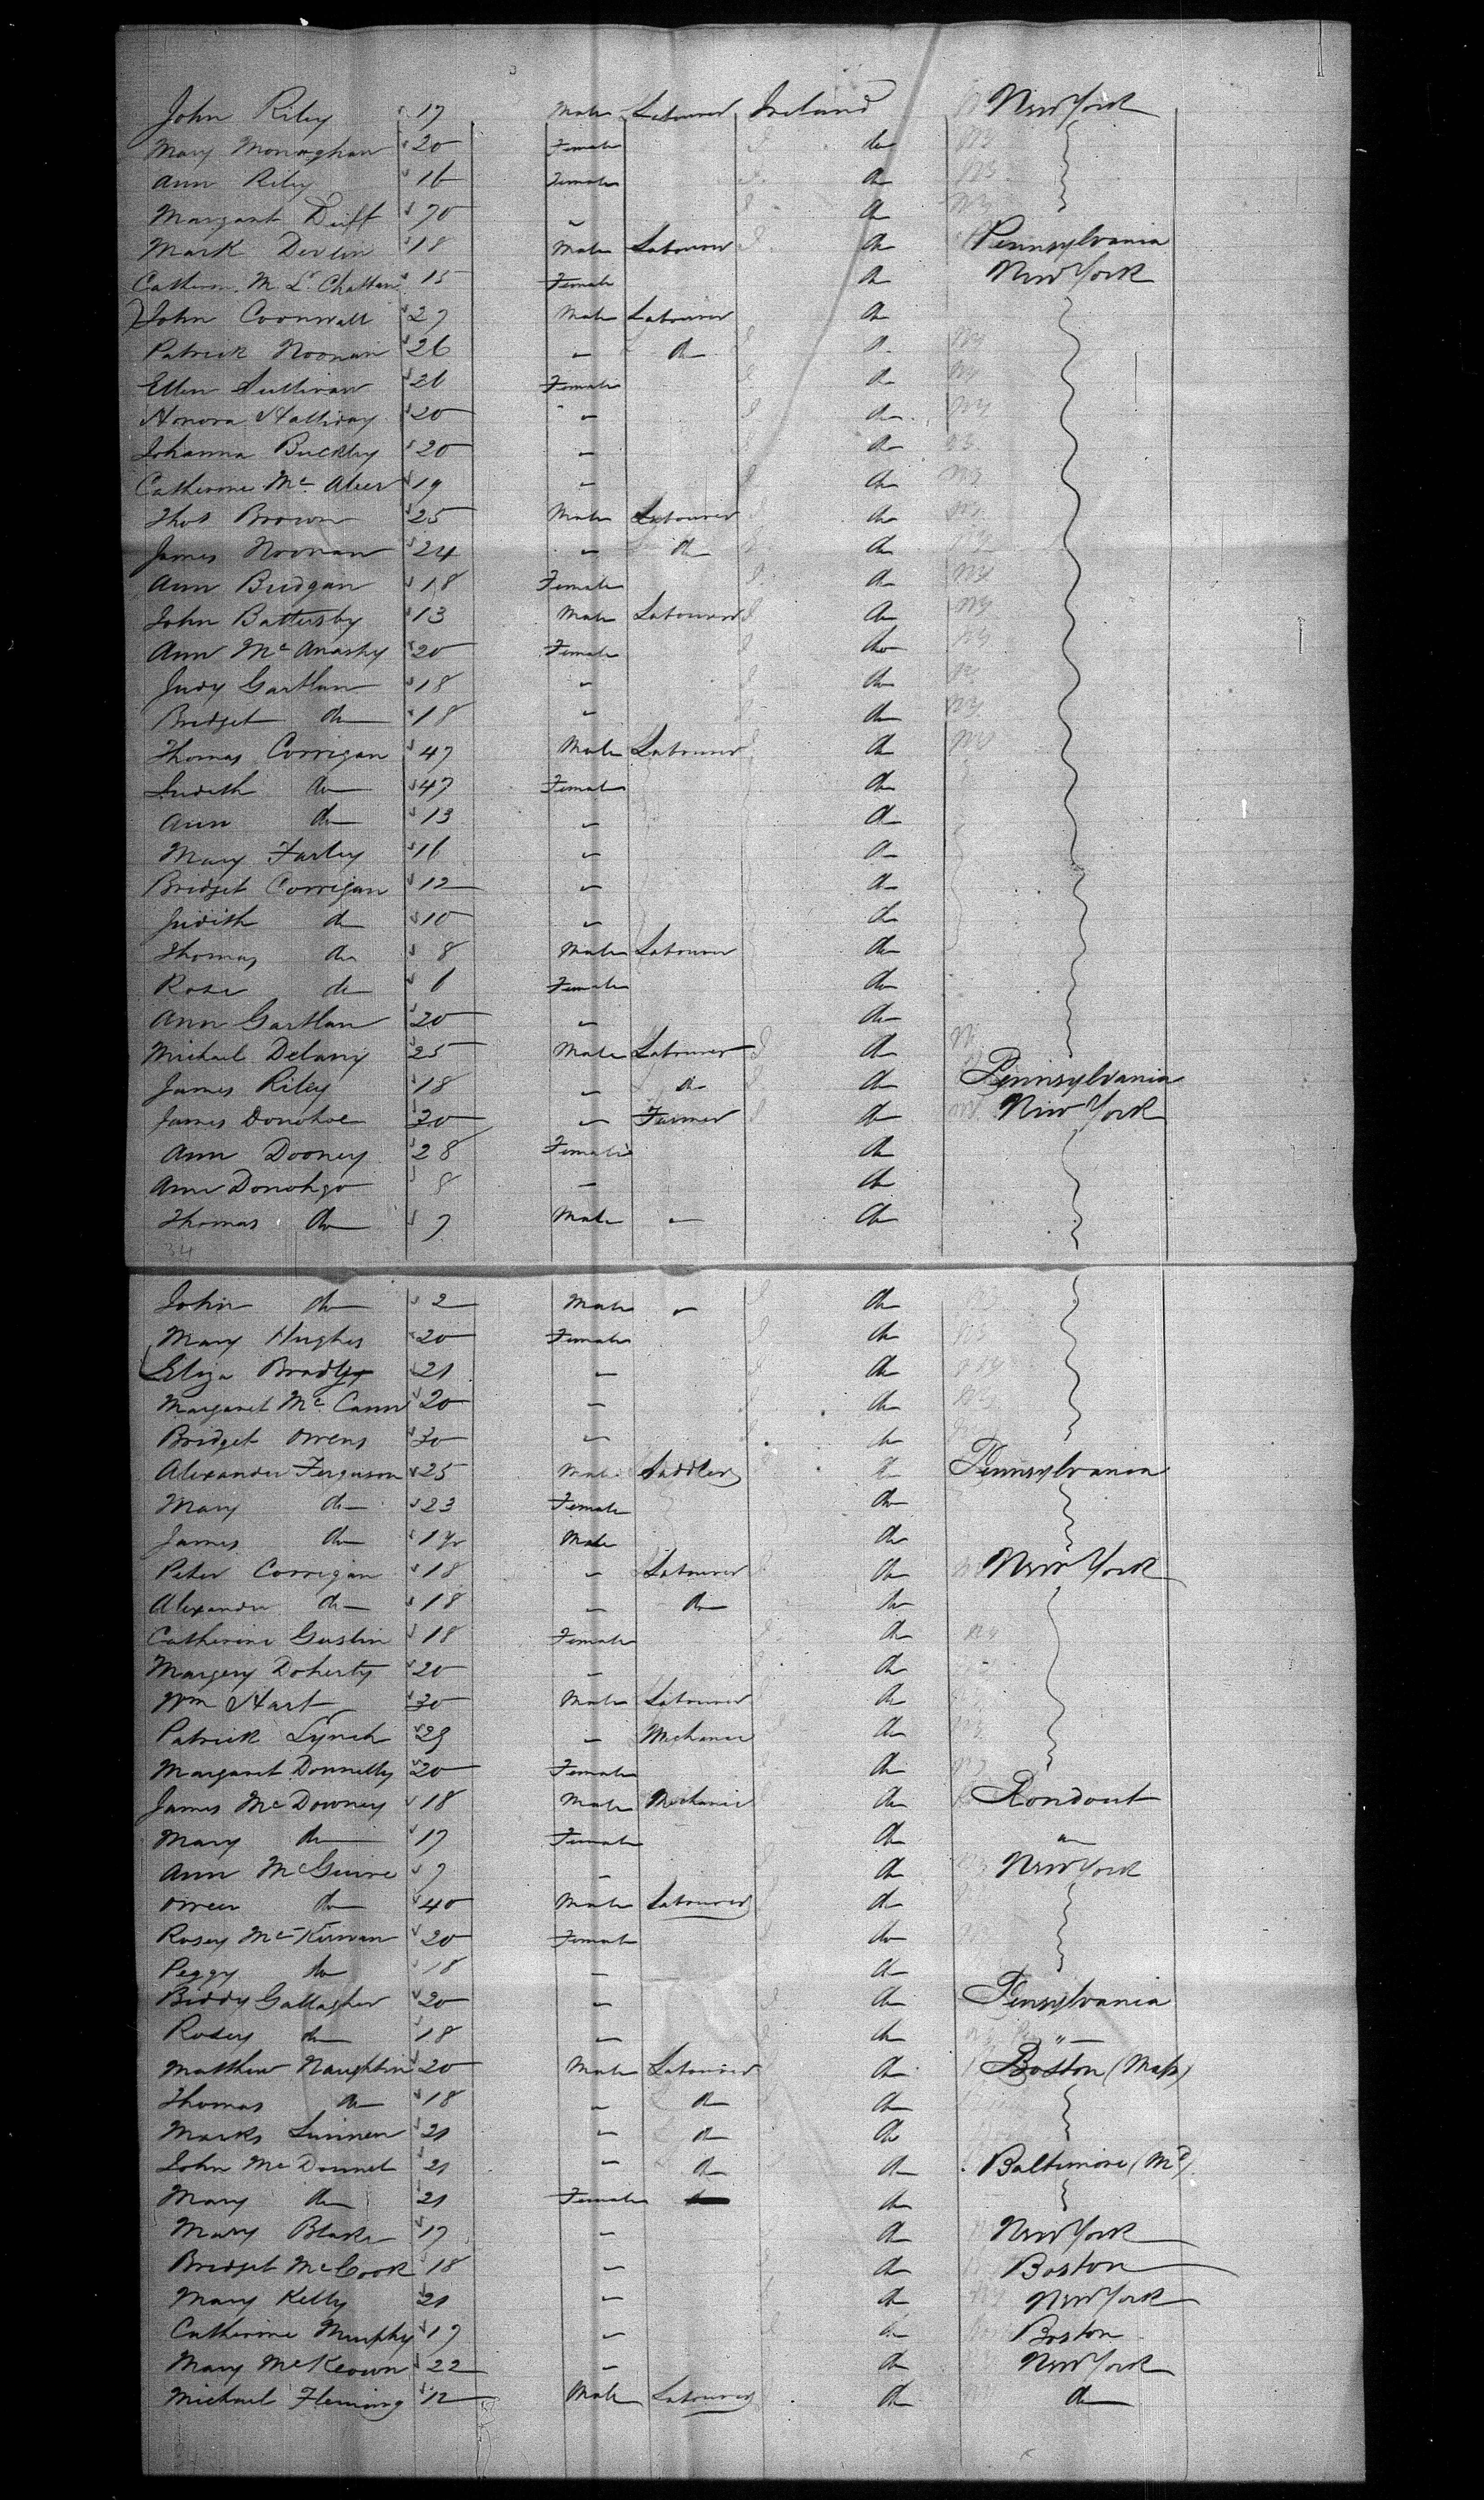 John Riley 17 Male Labourer Ireland New York
Mary Monaghan 20 Female do
Ann Riley 16 Female do
Margaret Duff 70 " do
Mark Devlin 18 Male Labourer do Pennsylvania
15 Female do New York
John Coonwall 27 Male Labourer do
Patrick Noonan 26 " do do
Ellen Sullivan 26 Female do
Honora Halliday 20 " do
Johanna Buckley 20 " do
Catherine Mc Aleer 19 " do
Thos Brown 25 Male Labourer do
James Noonan 24 " do do
Ann Budgan 18 Female do
John Battersby 13 Male Labourer do
Ann Mc Anashy 20 Female do
Judy Gartlan 18 " do
Bridget do 18 " do
Thomas Corrigan 47 Male Labourer do
Judith do 47 Female do
Ann do 13 " do
Mary Farley 16 " do
Bridget Corrigan 12 " do
Judith do 10 " do
Thomas do 8 Male Labourer do
Rose do 6 Female do
Ann Gartlan 20 " do
Michael Delany 25 Male Labourer do
James Riley 18 " do do Pennsylvania
James Donohoe 30 " Farmer do New York
Ann Dooney 28 Female do
Ann Donohgo 8 " do
Thomas do 7 Male " do
34
John do 2 Male " do
Mary Hughes 20 Female do
Eliza Bradly 21 " do
Margaret Mc Cann 20 " do
Bridget Owens 30 " do
Alexander Ferguson 25 Male Saddler do Pennsylvania
Mary do 23 Female do
James do 1 yr Male do
Peter Corrigan 18 " Labourer do New York
Alexander do 18 " do do
Catherine Guslin 18 Female do
Margery Doherty 20 " do
Wm Hart 30 Male Labourer do
Patrick Lynch 29 " Mechanic do
Margaret Donnelly 20 Female do
James Mc Downey 18 Male Mechanic do Rondout
Mary do 17 Female do "
Ann McGuire 7 " do New York
Owen do 40 Male Labourer do
Rosey Mc Kiernan 20 Female do
Peggy do 18 " do
Biddy Gallagher 20 " do Pensylvania
Rosey do 18 " do "
Matthew Naughtin 20 Male Labourer do Boston (Mass)
Thomas do 18 " do do
Marks Linnen 21 " do do
John Mc Donnel 21 " do do Baltimore (Md)
Mary do 21 Female do
Mary Blake 17 " do New York
Bridget McCook 18 " do Boston
Mary Kelly 21 " do New York
Catherine Murphy 17 " do Boston
Mary McKeown 22 " do New York
Michael Fleming 12 Male Labourer do do